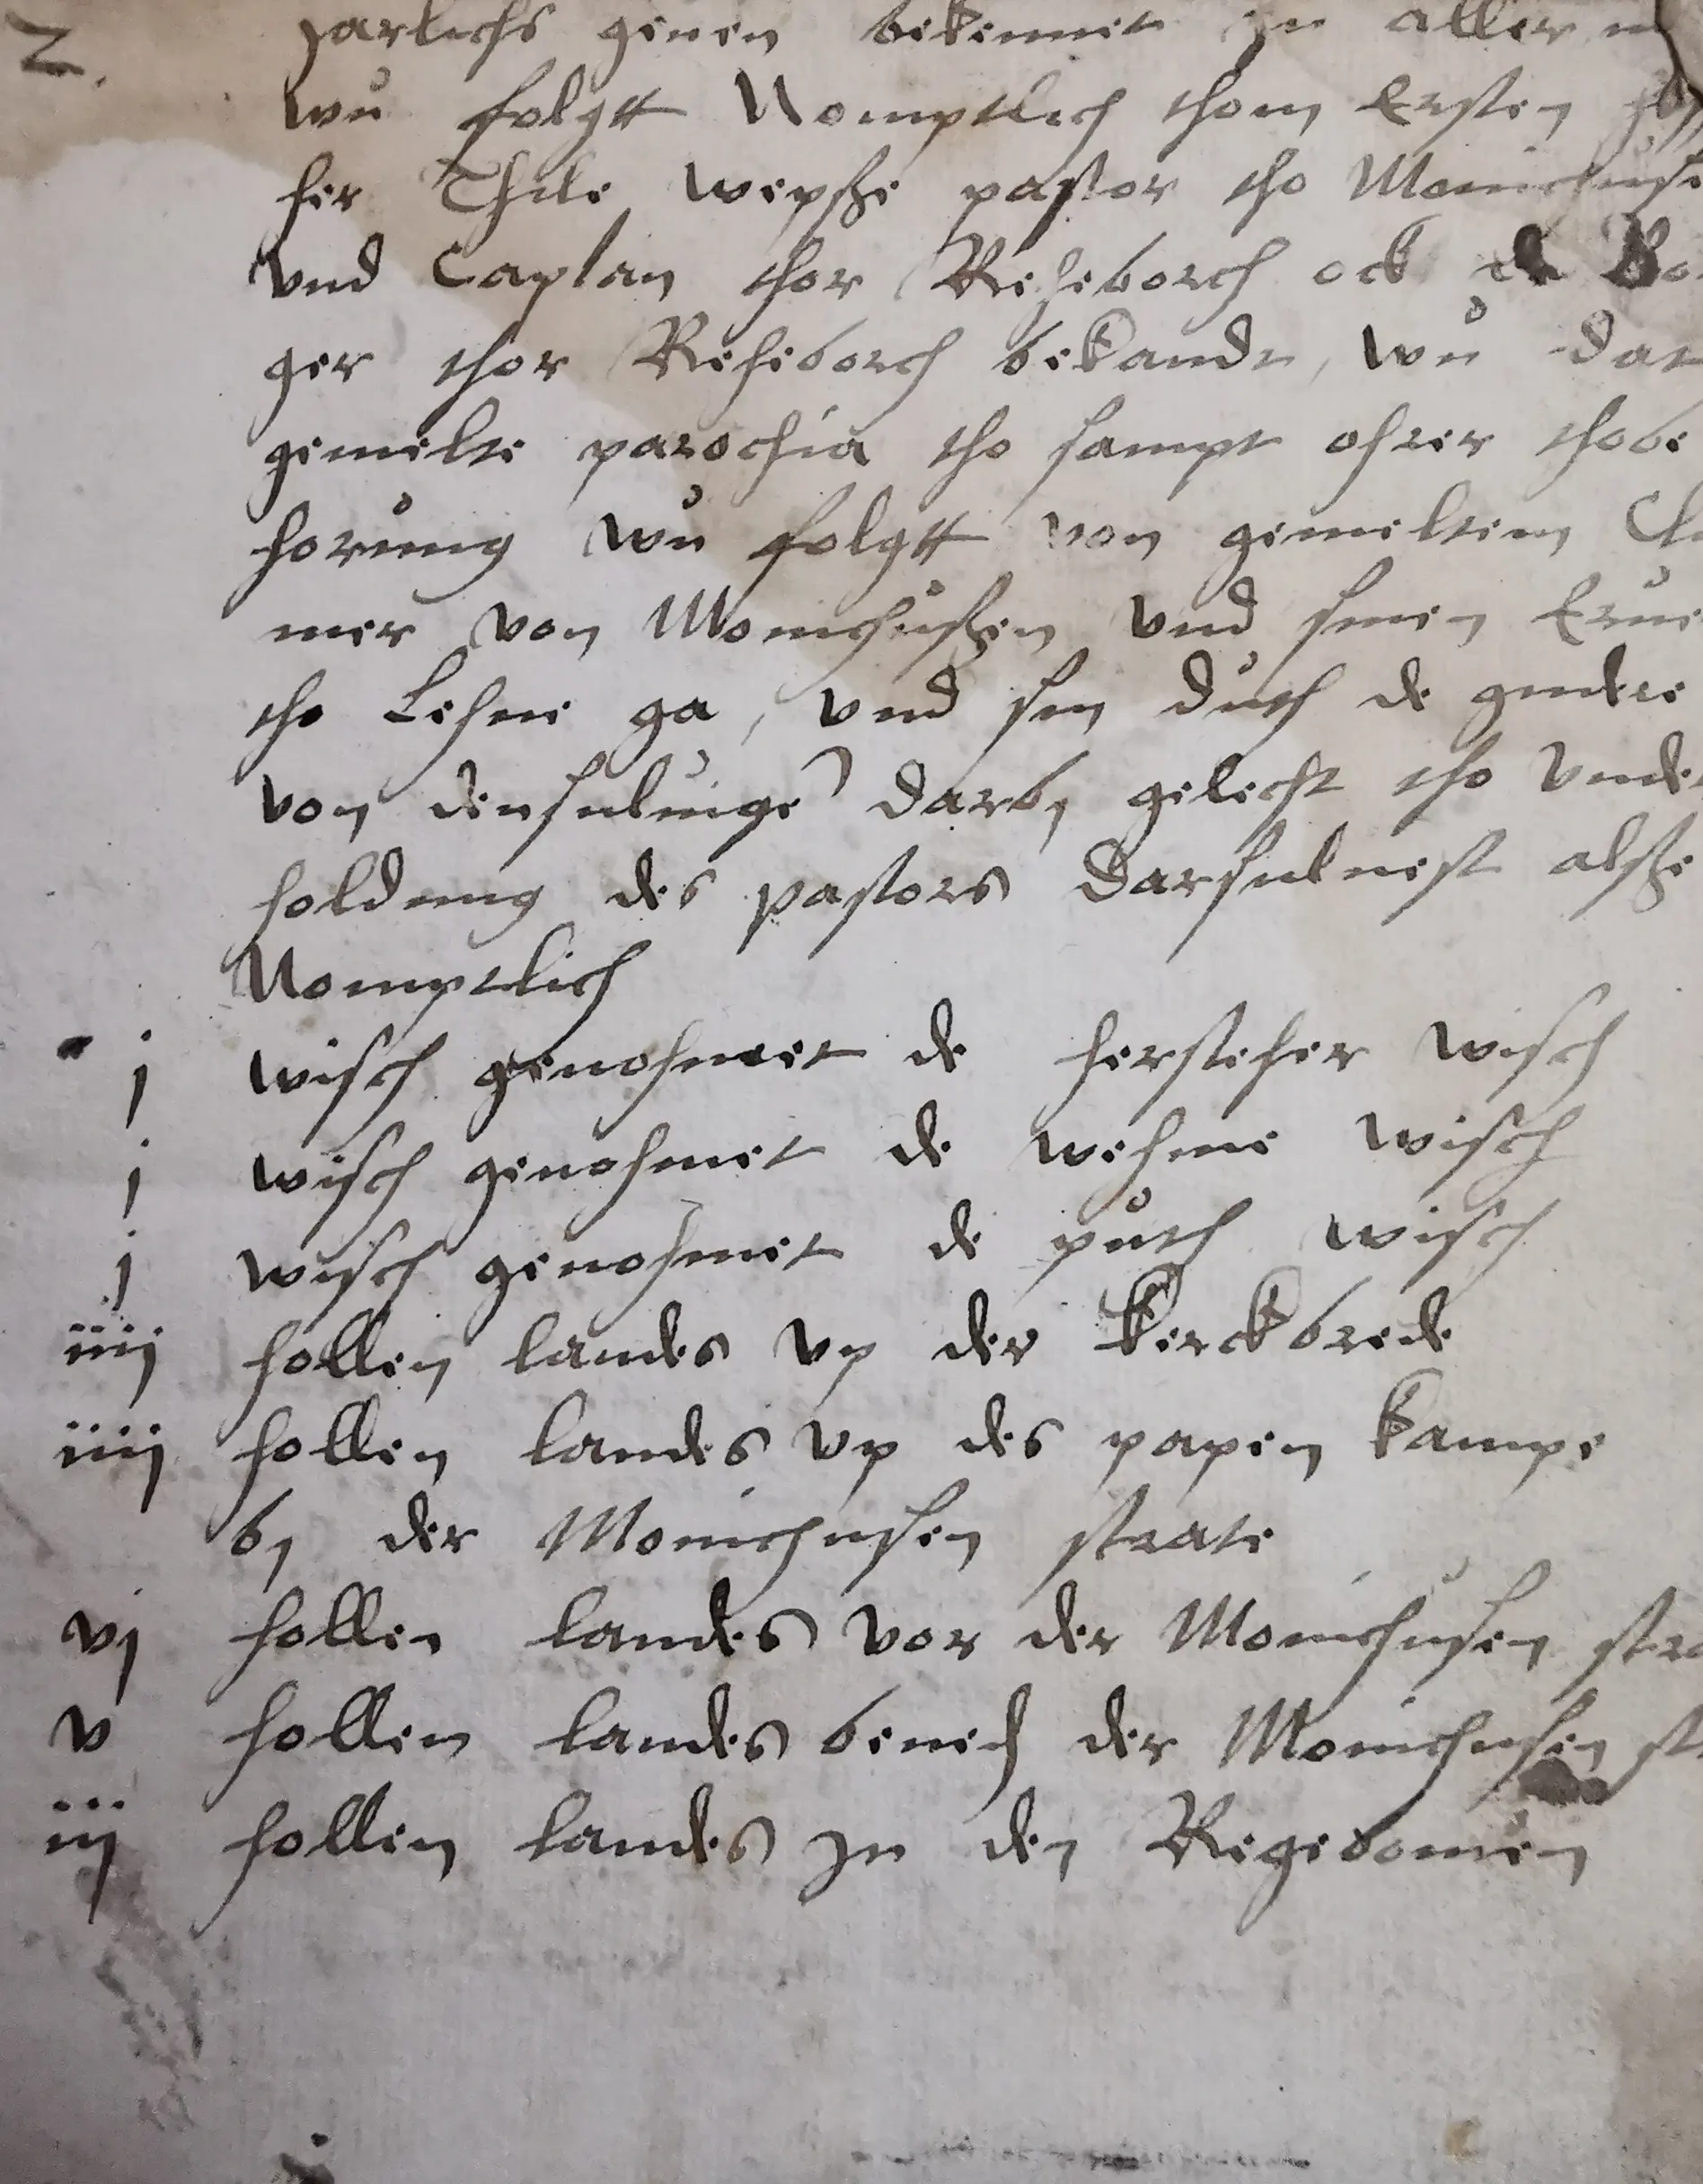 2.
Jarlichs geuen bekennet in aller
wů folgtt Nomptlich thom Ersten
her Thile wepsße pastor tho Monichuse
vnd Caplan thor Reheborch ock de Bo
ger thor Reheborch bekandt, wů dat
gemelte parochia tho sampt ohrer thobe
horůng wů folgtt von gemeltem Cl
mer von Monichůsßen vnd sinen Erue
tho Lehne ga, vnd sin důth de gudere
von densuluigē darby gelecht tho vnde
holdung des pastors darsuluest alsße
Nomptlich
j wisch genohmet de hersteher wisch
j wisch genohmet de wehme wisch
j wisch genohmet de půth wisch
iiij hollen landes vp der kerckbrede
iiij hollen landes vp des papen kampe
by der Monichusen strate
vj hollen landes vor der Monichůsen stra
v hollen landes beneth der Monichusen st
iij hollen landes In den Regebomen